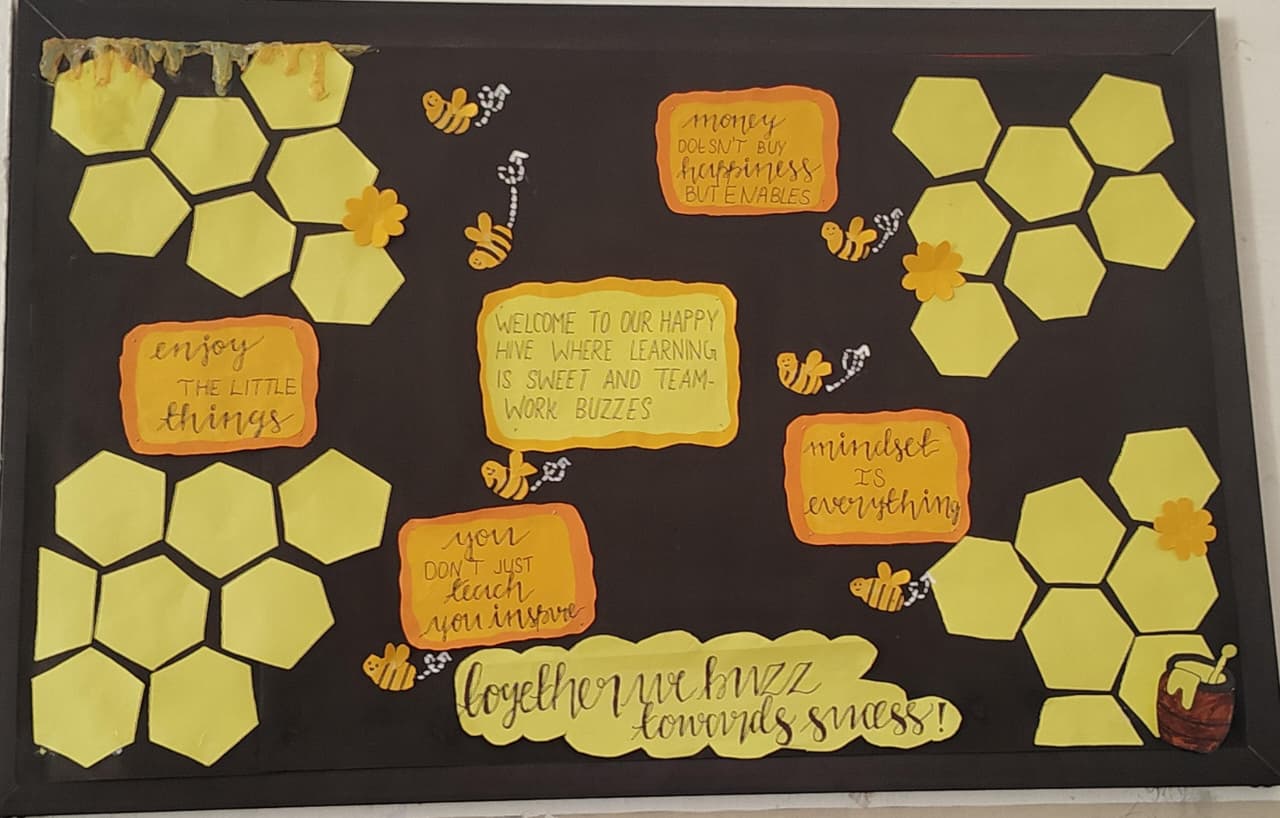 money
DOESN'T BUY
happiness
BUT ENABLES
WELCOME TO OUR HAPPY
HIVE WHERE LEARNING
IS SWEET AND TEAM-
WORK BUZZES
enjoy
THE LITTLE
things
mindset
IS
everything
you
DON'T JUST
teach
you inspire
together we buzz
towards sucess!